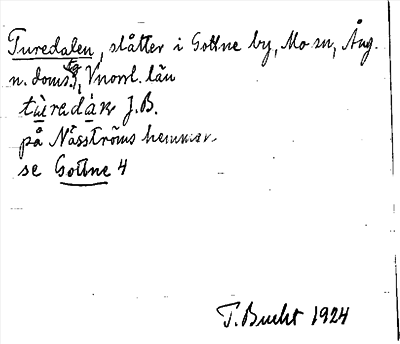 Turedalen, slåtter i Gottne by, Mo sn, Ång.
n. doms.tg, Vnorrl. län
tùredàɴ J.B.
på Näsströms hemman.
se Gottne 4
T. Bucht 1924